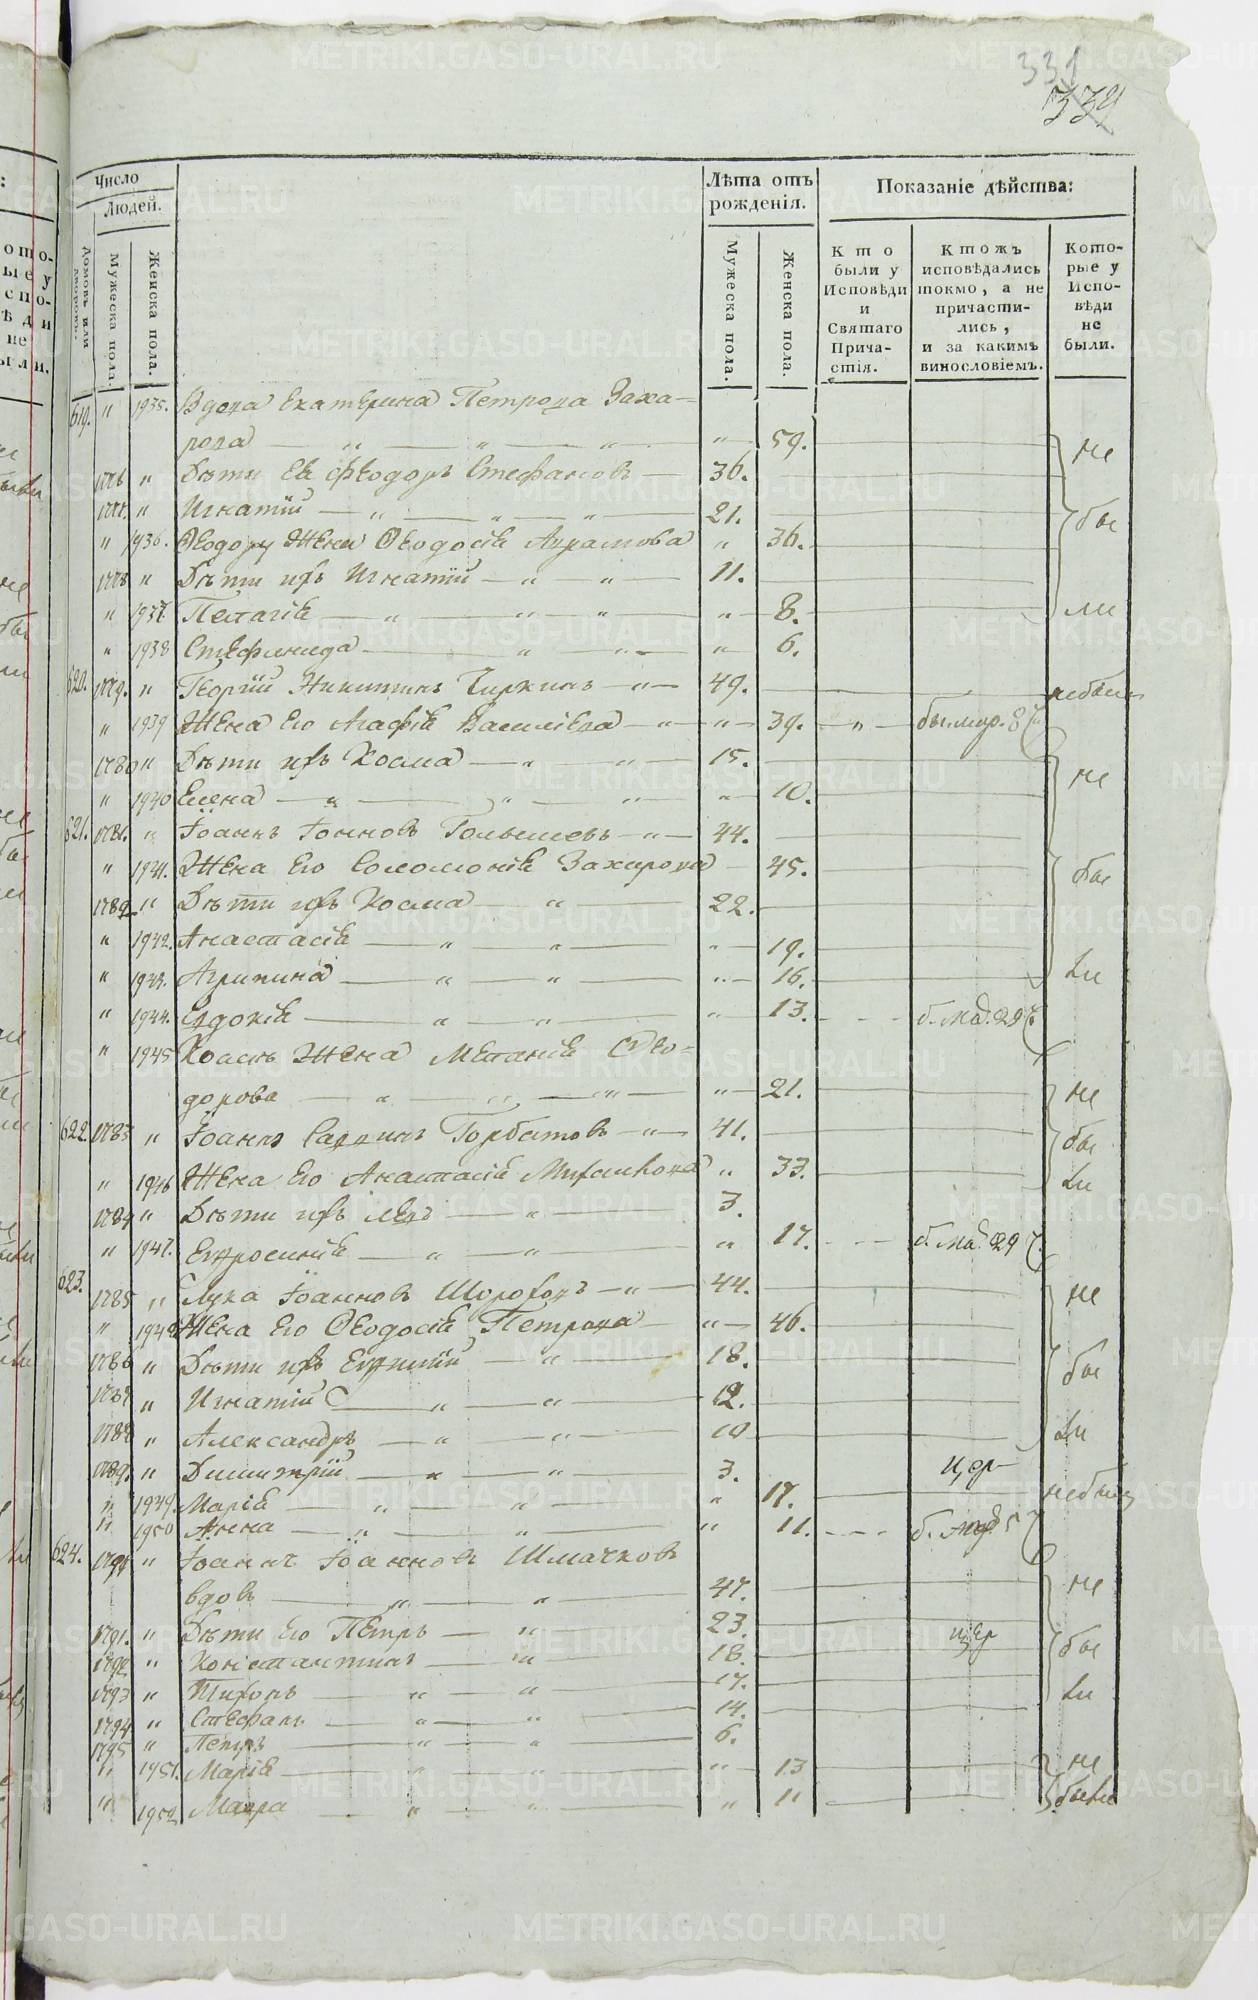 331
339
Число
Людей.
Домовъ или дворовъ.
Мужеска пола.
Женска пола.
Лѣта отъ рожденія.
Мужеска пола.
Женска пола.
Показаніе дѣйства:
Кто были у Исповѣди и Святаго Причастія.
Ктожъ исповѣдались токмо, а не причастились, и за какимъ винословіемъ.
Которые у Исповѣди не были.
619. " 1935. Вдова Екатерина Петрова Заха-
рова " 59. не
1776 " Дѣти Ея Ѳеодоръ Стефановъ 36.
1777. " Игнатій 21. бы
" 1936. Ѳеодору Жена Ѳеодосія Аврамова " 36.
1778 " Дѣти ихъ Игнатій 11.
" 1937. Пелагія " 8. ли
" 1938 Стефанида " 6.
620. 1779. " Георгій Никитинъ Чиркинъ 49. небылъ
" 1939 Жена Его Агафія Василіева " 39.
1780 " Дѣти ихъ Косма 15. не
" 1940 Елена " 10.
621. 1781. " Іоаннъ Іоанновъ Голышевъ 44.
" 1941. Жена Его Соломонія Захарова 45. бы
1782 " Дѣти ихъ Косма 22.
" 1942. Анастасія " 19.
" 1943. Агрипина " 16. ли
" 1944. Евдокія " 13. б. мая. 29
" 1945 Космы Жена Меланія Ѳео-
дорова " 21. не
622. 1783 " Іоаннъ Саввинъ Горбатовъ 41. бы
" 1946 Жена Его Анастасія Михайлова " 33. ли
1784 " Дѣти ихъ 3.
" 1947. Евфросинія " 17. б. мая. 29
623. 1785 " Лука Іоанновъ Шороховъ 44. не
" 1948 Жена Его Ѳеодосія Петрова " 46.
1786 " Дѣти ихъ Евфимій 18. бы
1787 " Игнатій 12.
1788 " Александръ 10 ли
1789. " Димитрій 3.
" 1949. Марія " 17. небыла
" 1950 Анна " 11.
624. 1790 " Іоаннъ Іоанновъ Шмачковъ
вдовъ 47. не
1791. " Дѣти Его Петръ 23.
1792 " Константинъ 18. бы
1793 " Тихонъ 17. ли
1794 " Стефанъ 14.
1795 " Петръ 6.
" 1951. Марія " 13 не
" 1952 Мавра " 11 были
METRIKI.GASO-URAL.RU